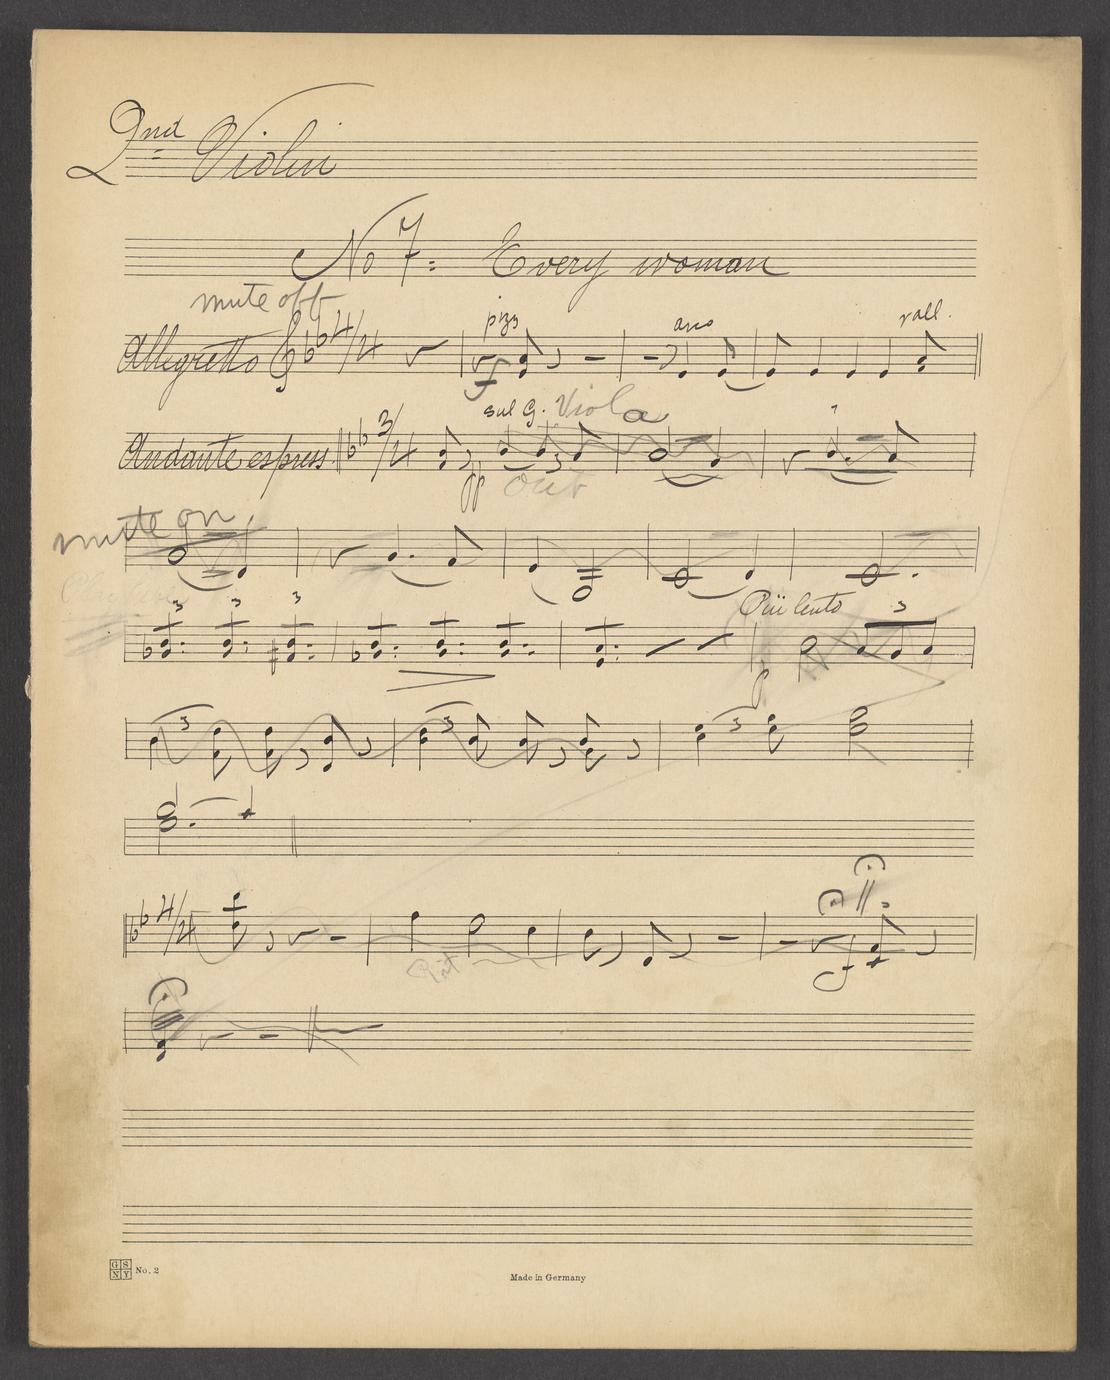 2nd Violin
No 7 = Every woman
mute off
pizz arco rall.
Allegretto 4/4
f
sul G. Viola
Andante espress. 3/4
pp out 3
mute on
3 3 3 Più lento 3
p
3 3 3
4/4
f
GS NY No. 2 Made in Germany